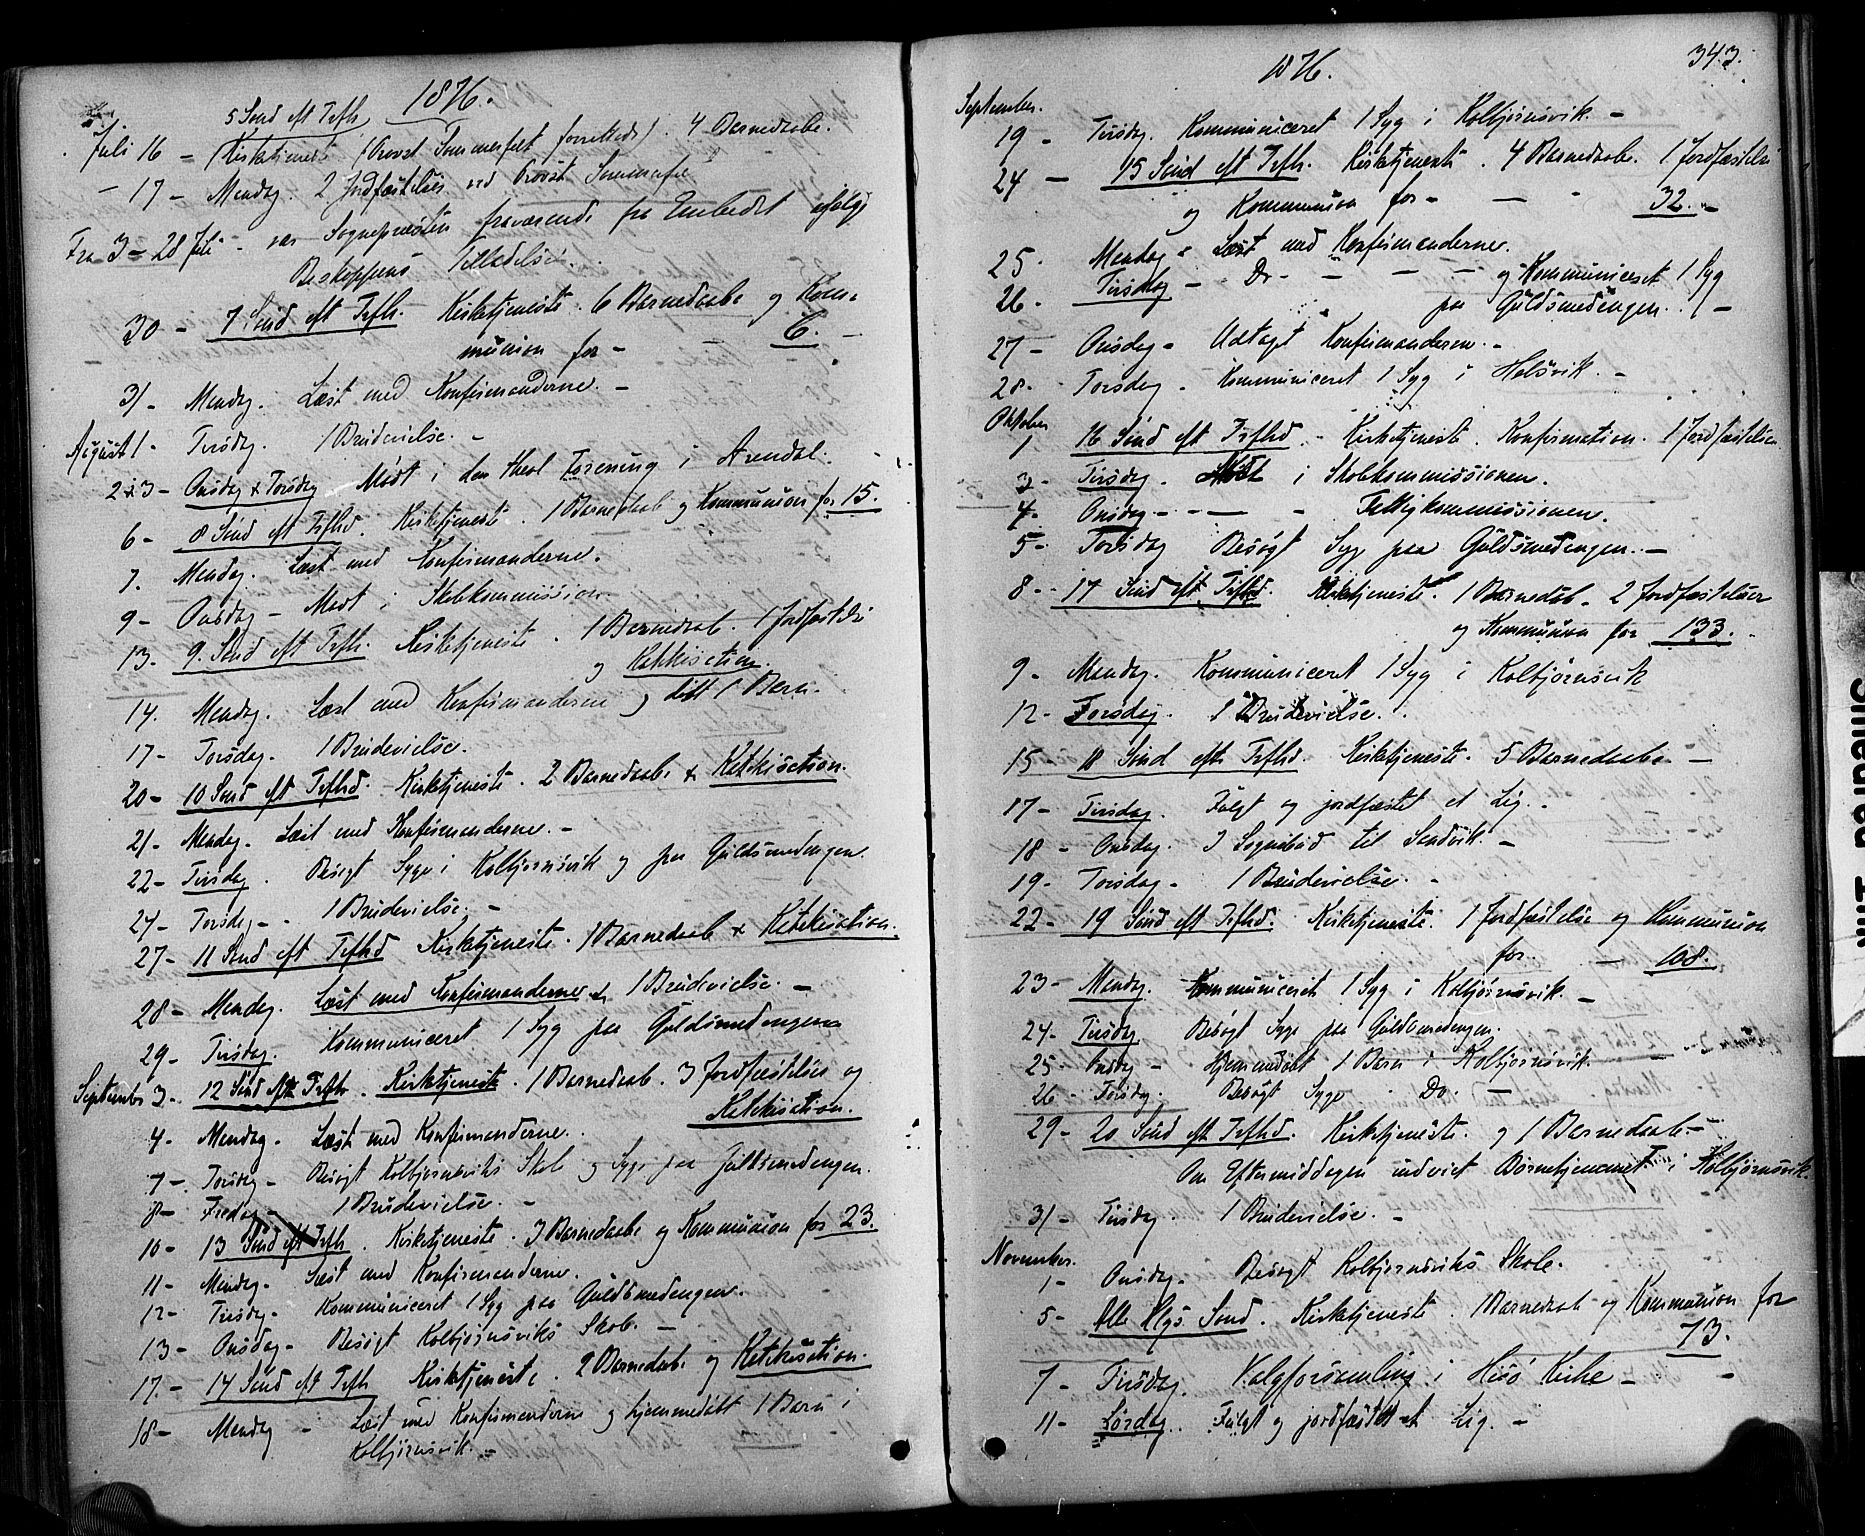 1876.
5 Sønd eft Trfh
Juli 16 – Kirketjeneste (Provst Sommerfelt forrettede). 4 Barnedaabe.
– 17 – Mandag. 2 Jordfæstelser ved Provst Sommerfe
Fra 3 – 28 Juli – var Sognepræsten fraværende fra Embedet ifølge
Biskoppens Tilladelse.
30 – 7 Sønd eft Trfh. Kirketjeneste. 6 Barnedaabe og Kom-
munion for – – 6. –
31 – Mandag. Læst med Konfirmanderne. –
August 1 – Tirsdag. 1 Brudevielse. –
2 & 3 – Onsdag & Torsdag Mødt i den theol Forening i Arendal.
6 – 8 Sønd eft Trfhd. Kirketjeneste. 1 Barnedaab og Kommunion for 15.
7. Mandag. Læst med Konfirmanderne.
9 – Onsdag – Mødt i Skolekommission
13. 9. Sønd eft Trfh. Kirketjeneste. 1 Barnedaab. 1 Jordfæstelse
og Katekisation.
14. Mandag. Læst med Konfirmanderne og døbt 1 Barn.
17 – Torsdag. 1 Brudevielse.
20 – 10 Sønd eft Trfhd. Kirketjeneste. 2 Barnedaabe & Katekisation.
21 – Mandag. Læst med Konfirmanderne. –
22 – Tirsdag. Besøgt Syge i Kolbjørnsvik og paa Guldsmedengen.
24 – Torsdag – 1 Brudevielse. –
27 – 11 Sønd eft Trfhd Kirketjeneste. 1 Barnedaab & Katekisation.
28 – Mandag. Læst med Konfirmanderne & 1 Brudevielse. –
29 – Tirsdag. Kommuniceret 1 Syg paa Guldsmedengen
September 3 – 12 Sønd eft Trfh. Kirketjeneste. 1 Barnedaab. 3 Jordfæstelser og
Katekisation.
4 – Mandag – Læst med Konfirmanderne.
7 – Torsdag – Besøgt Kolbjørnsviks Skole og Syge paa Guldsmedengen.
8 – Fredag – 1 Brudevielse. –
10 – 13 Sønd eft Trfh. Kirketjeneste. 3 Barnedaabe og Kommunion for 23.
11 – Mandag – Læst med Konfirmanderne.
12 – Tirsdag – Kommuniceret 1 Syg paa Guldsmedengen.
13 – Onsdag – Besøgt Kolbjørnsviks Skole. –
17. – 14 Sønd eft Trfh Kirketjeneste. 2 Barnedaabe og Katekisation.
18 – Mandag – Læst med Konfirmanderne og hjemmedøbt 1 Barn i
Kolbjørnsvik. –
1876.
343.
September.
19 – Tirsdag. Kommuniceret 1 Syg i Kolbjørnsvik. –
24 – 15 Sønd eft Trfh. Kirketjeneste. 4 Barnedaabe. 1 Jordfæstelse
og Kommunion for – – – 32. –
25 – Mandag – Læst med Konfirmanderne.
26 – Tirsdag – Do – – – – og Kommuniceret 1 Syg
paa Guldsmedengen. –
27 – Onsdag – Udtagt Konfirmanderne. –
28 – Torsdag – Kommuniceret 1 Syg i Helsvik. –
Oktober
1 – 16 Sønd eft Trfhd. – Kirketjeneste. Konfirmation. 1 Jordfæstelse
3 – Tirsdag. Mødt i Skolekommissionen.
4 – Onsdag – – – – Fattigkommissionen.
5 – Torsdag Besøgt Syge paa Guldsmedengen. –
8 – 17 Sønd eft Trfhd. Kirketjeneste. 1 Barnedaab – 2 Jordfæstelser
og Kommunion for 133. –
9 – Mandag. Kommuniceret 1 Syg i Kolbjørnsvik
12 – Torsdag. 1 Brudevielse.
15 – 18 Sønd eft Trfhd. Kirketjeneste. 5 Barnedaabe –
17 – Tirsdag. Fulgt og jordfæstet et Lig. –
18 – Onsdag. I Sognebud til Sandvik. –
19 – Torsdag – 1 Brudevielse. –
22 – 19 Sønd eft Trfhd. Kirketjeneste. 1 Jordfæstelse og Kommunion
for. – 108.
23 – Mandag. Kommuniceret 1 Syg i Kolbjørnsvik. –
24 – Tirsdag Besøgt Syge paa Guldsmedengen.
25 – Onsdag – Hjemmedøbt 1 Barn i Kolbjørnsvik. –
26 – Torsdag. Besøgt Syge – Do. –
29 – 20 Sønd eft Trfhd. Kirketjeneste. og 1 Barnedaab –
Om Eftermiddagen indviet Børnehjemmet i Kolbjørnsvik.
31 – Tirsdag. 1 Brudevielse. –
November.
1 – Onsdag. Besøgt Kolbjørnsviks Skole.
5 – Alle Hlgs. Sønd. Kirketjeneste. 1 Barnedaab og Kommunion for
73.
7 – Tirsdag. Valgforsamling i Hisø Kirke –
11 – Lørdag. Fulgt og jordfæstet et Lig. –